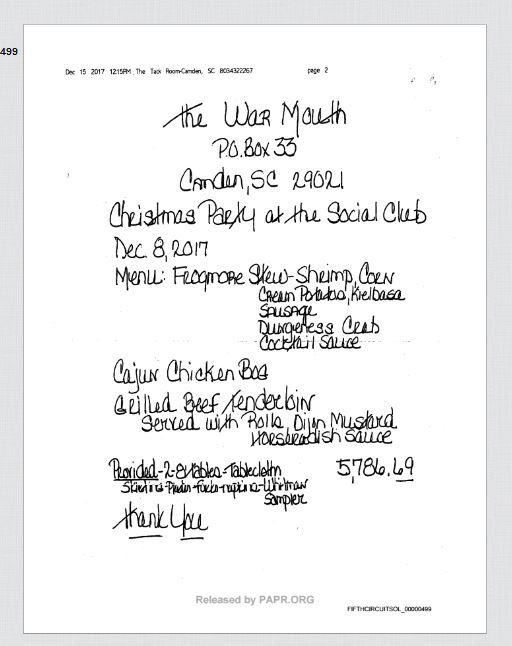 499
Dec 15 2017 12:15PM The Tack Room-Camden, SC 8034322267 page 2
the War Mouth
P.O. Box 33
Camden, SC 29021
Christmas Party at the Social Club
Dec. 8, 2017
Menu: Frogmore Stew-Shrimp, Corn
Cream Potatoes, Kielbasa
Sausage
Dungeness Crab
Cocktail Sauce
Cajun Chicken Bog
Grilled Beef Tenderloin
Served with Rolls, Dijon Mustard
Horseradish Sauce
Provided-2-8' tables-Tablecloth 5,786.69
forks-napkins-Whitman
Sampler
thank You
Released by PAPR.ORG
FIFTHCIRCUITSOL_00000499